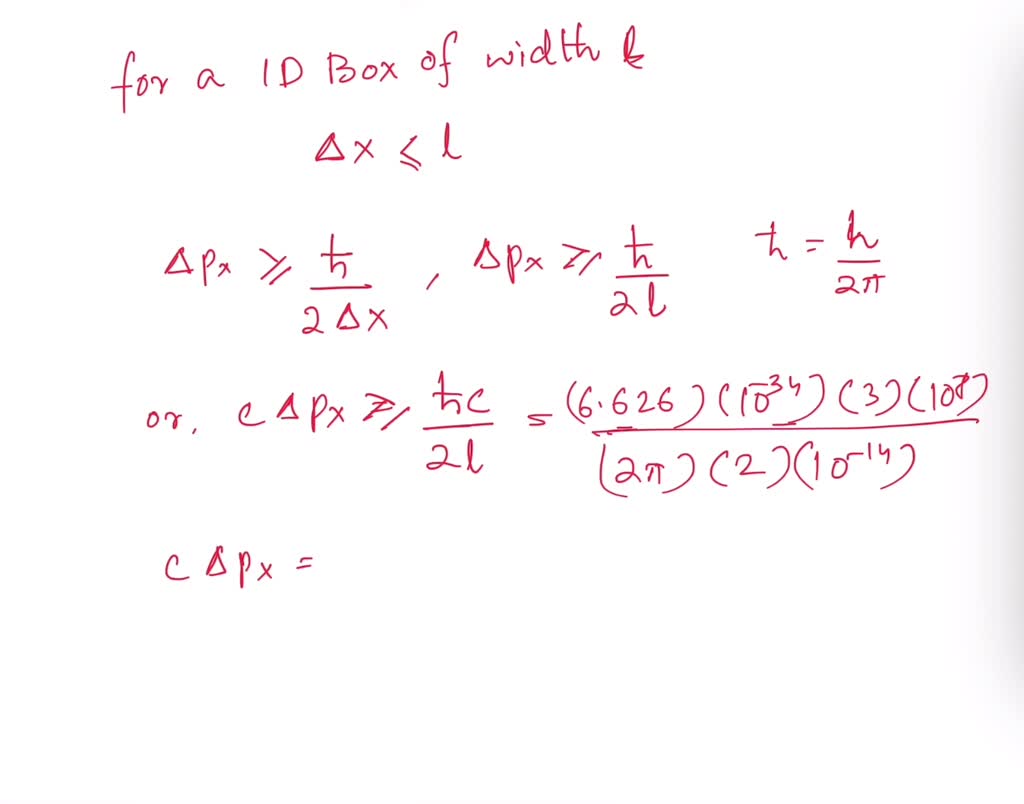 for a 1D Box of width l
Δx ⩽ l
Δpx ⩾ ħ/2Δx , Δpx ⩾ ħ/2l ħ = h/2π
or, cΔpx ⩾ ħc/2l = (6.626)(10^-34)(3)(10^8)/(2π)(2)(10^-14)
cΔpx =